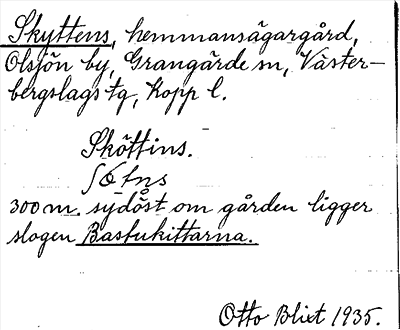 Skyttens, hemmansägargård,
Olsjön by, Grangärde sn, Väster-
bergslags tg, Kopp l.
Sköttins.
ʃɵ̂tns
300 m. sydöst om gården ligger
slogen Bastukittarna.
Otto Blixt 1935.